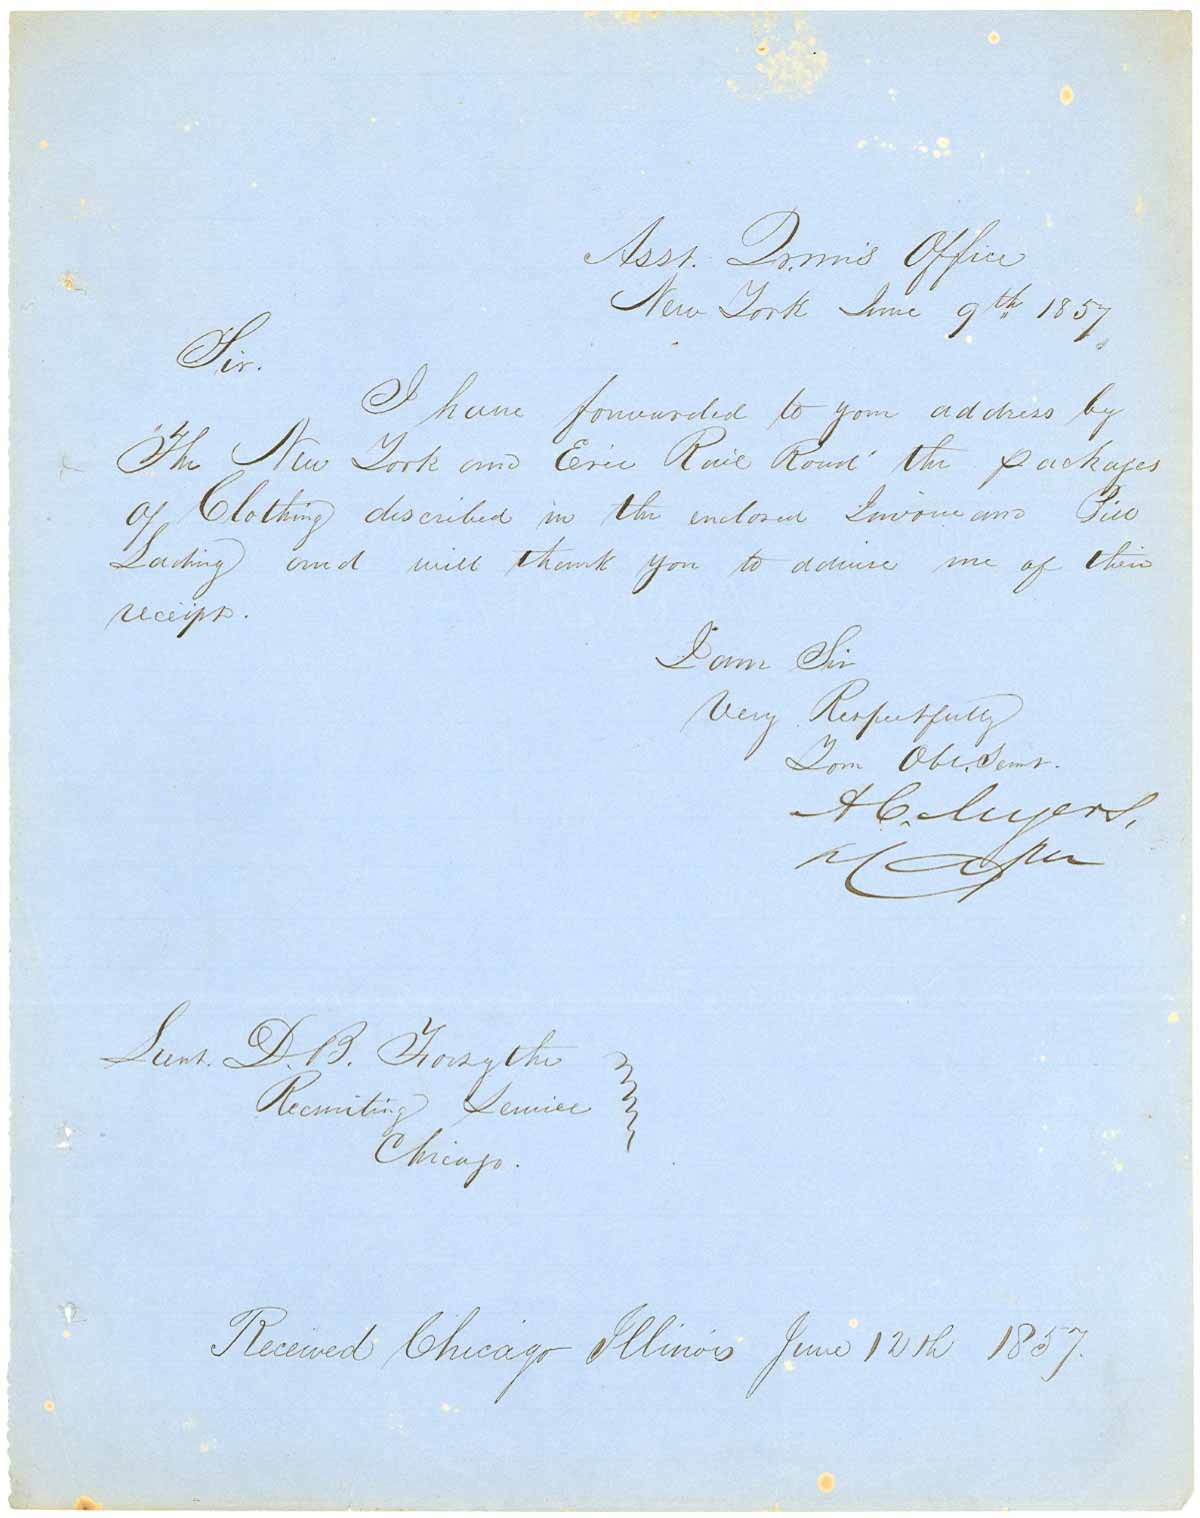 Asst. Qr.m's Office
New York June 9th 1857
Sir.
I have forwarded to your address by
The New York and Erie Rail Road the packages
of Clothing described in the enclosed Invoice and Bill
Lading and will thank you to advise me of their
receipt.
I am Sir
Very Respectfully
Your Obt. Servt.
A C. Myers,
Lieut. D. B. Forsythe
Recruiting Service
Chicago.
Received Chicago Illinois June 12th 1857.